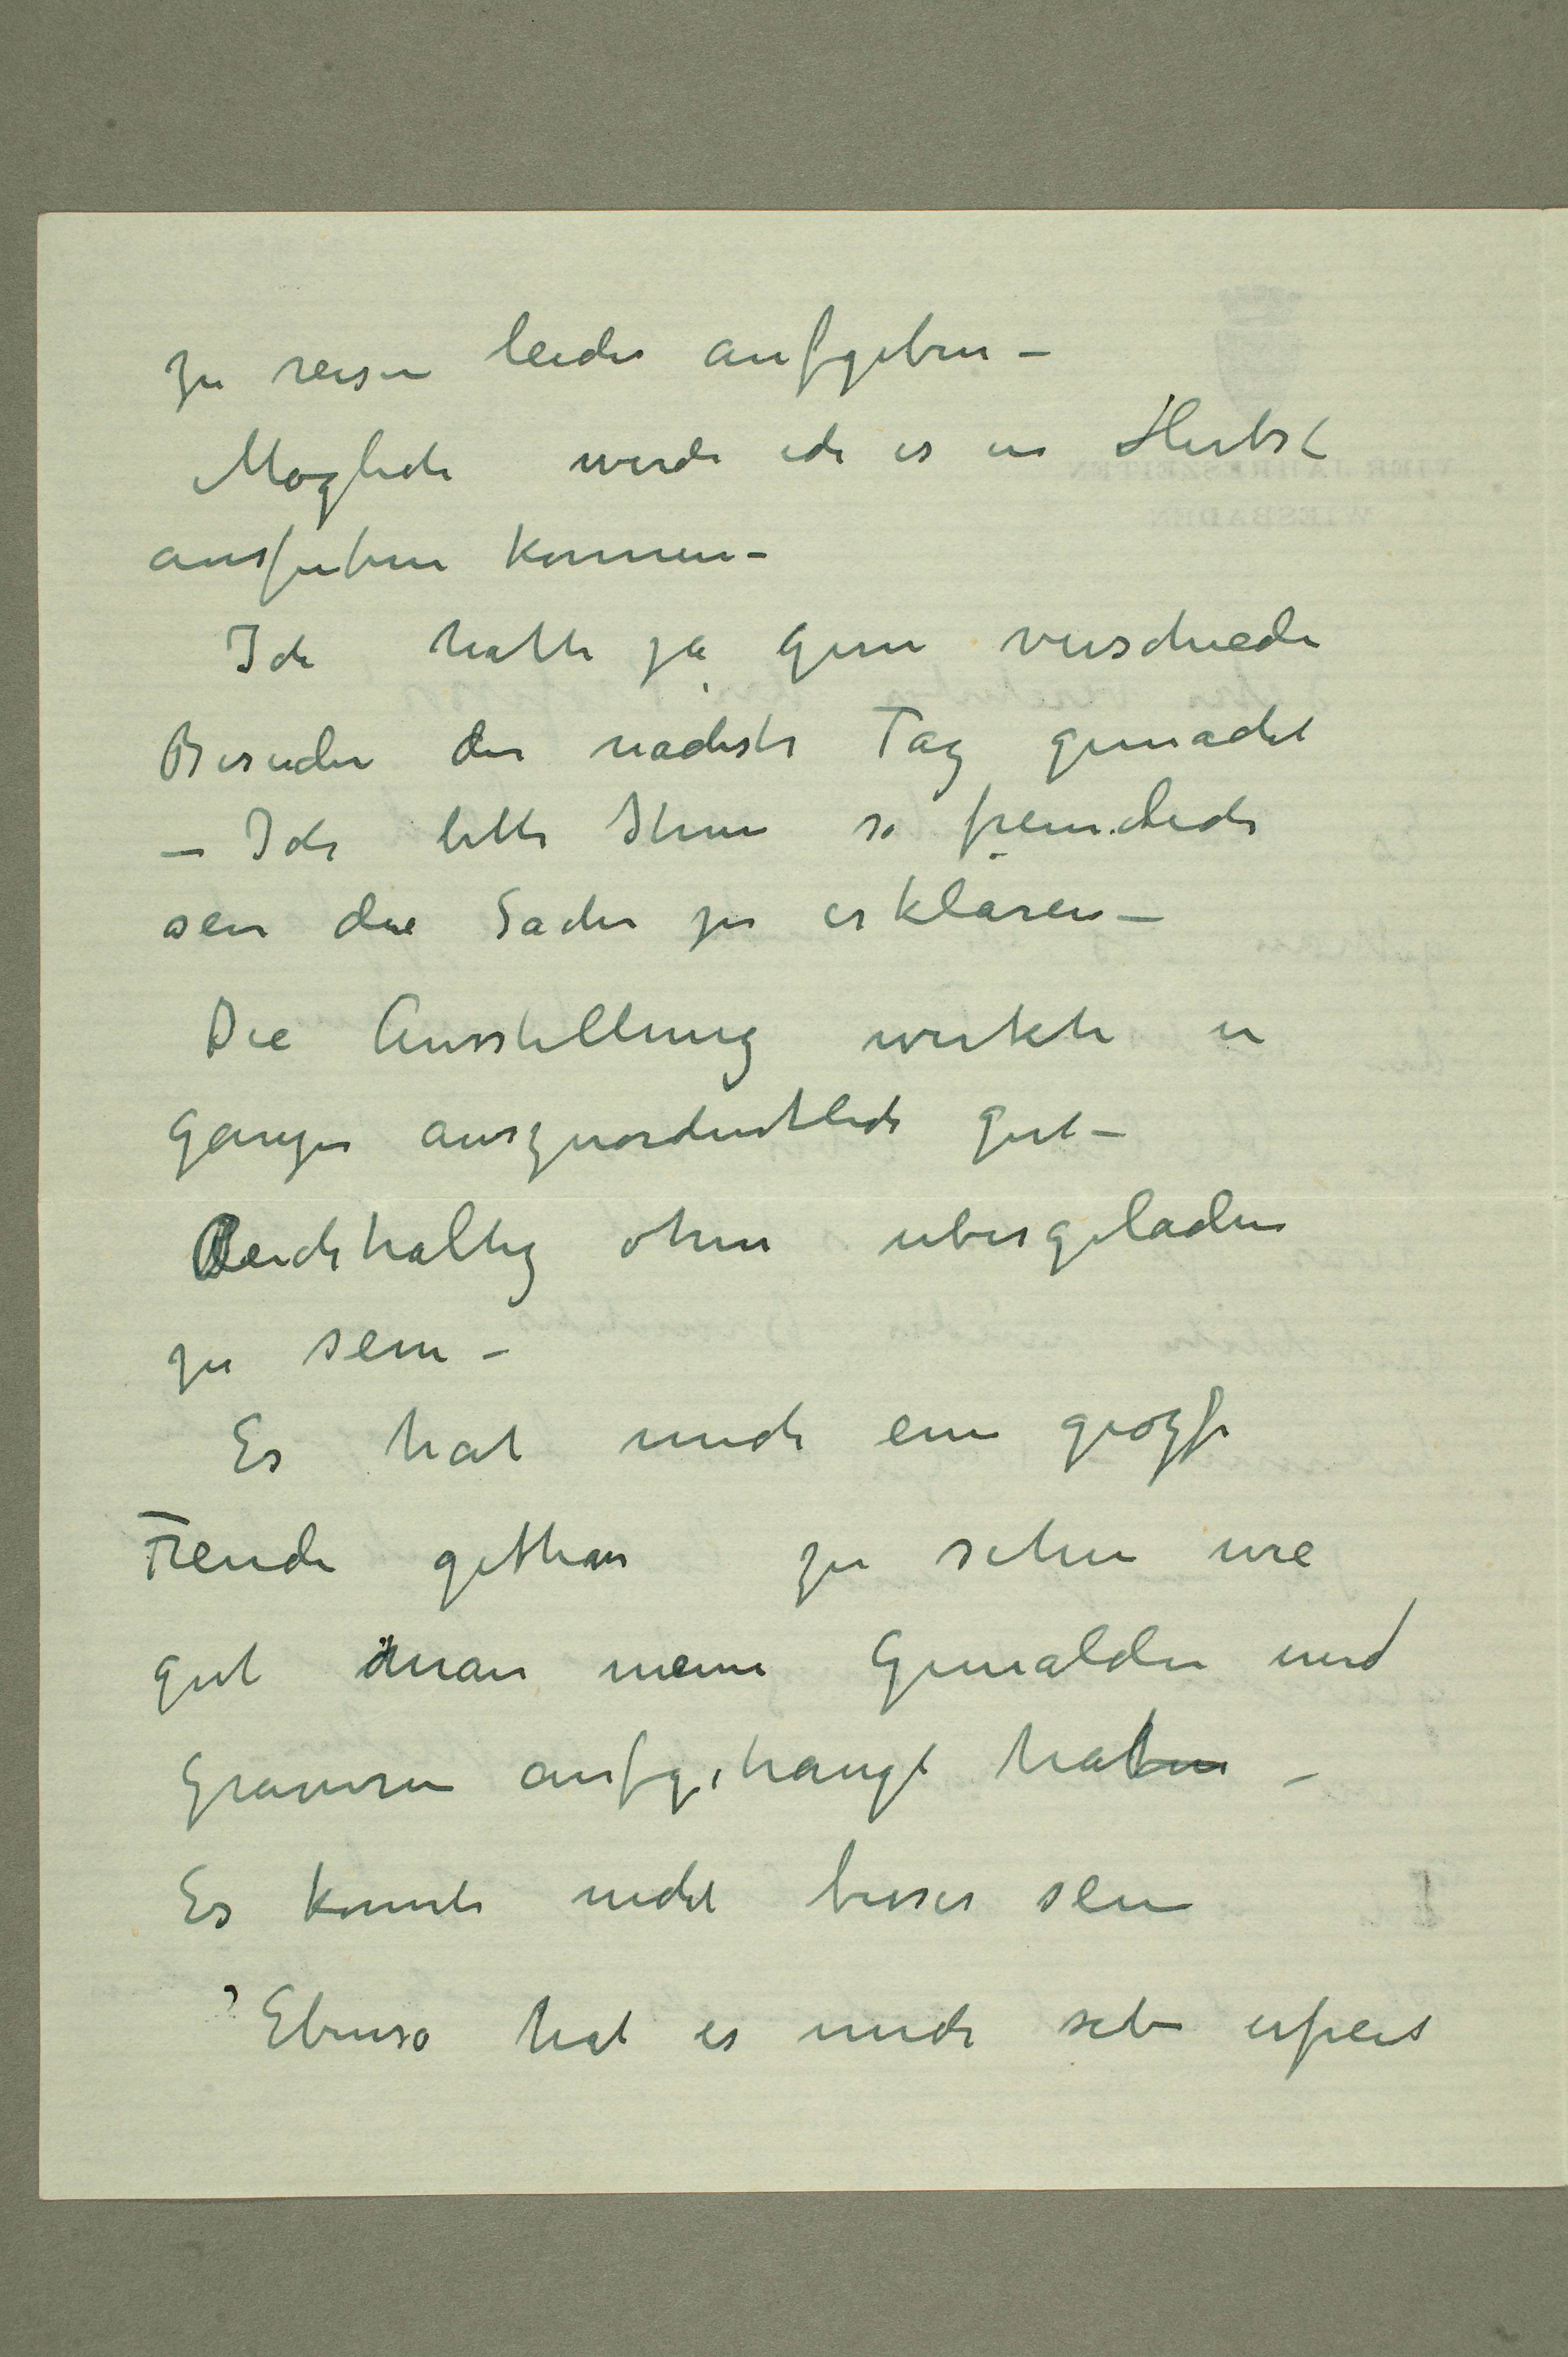 zu reisen leider aufgeben –
Moglich werde ich es im Herbst
ausfuhren konnen –
Ich hatte ja gern verschiede
Besuche den nachste Tag gemacht
– Ich bitte Ihnen so freundlich
sein die Sache zu erklaren –
Die Ausstellung wirkte in
ganzen auszerordentlich gut –
Reichhaltig ohne ubergeladen
zu sein –
Es hat mich eine grozse
Freude gethan zu sehen wie
gut man meine Gemalden und
Gravuren aufgehangt haben –
Es konnte nicht besser sein
Ebenso hat es mich sehr erfreut
VIER JAHRESZEITEN
WIESBADEN